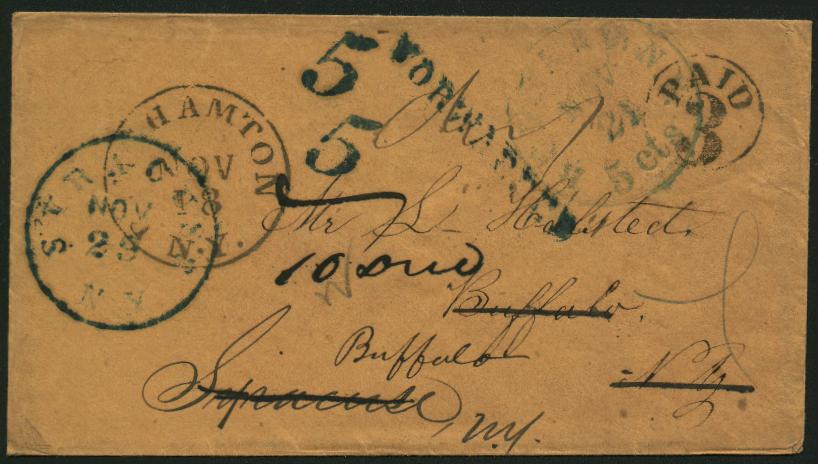 5
5
FORWARDED
NOV
21
5 cts
PAID
3
HAMTON
NOV
18
N.Y.
SYRAC
NOV
25
N.Y
Mr L Halsted
10 due
Buffalo.
N Y
Buffalo
Syracuse
N.Y.